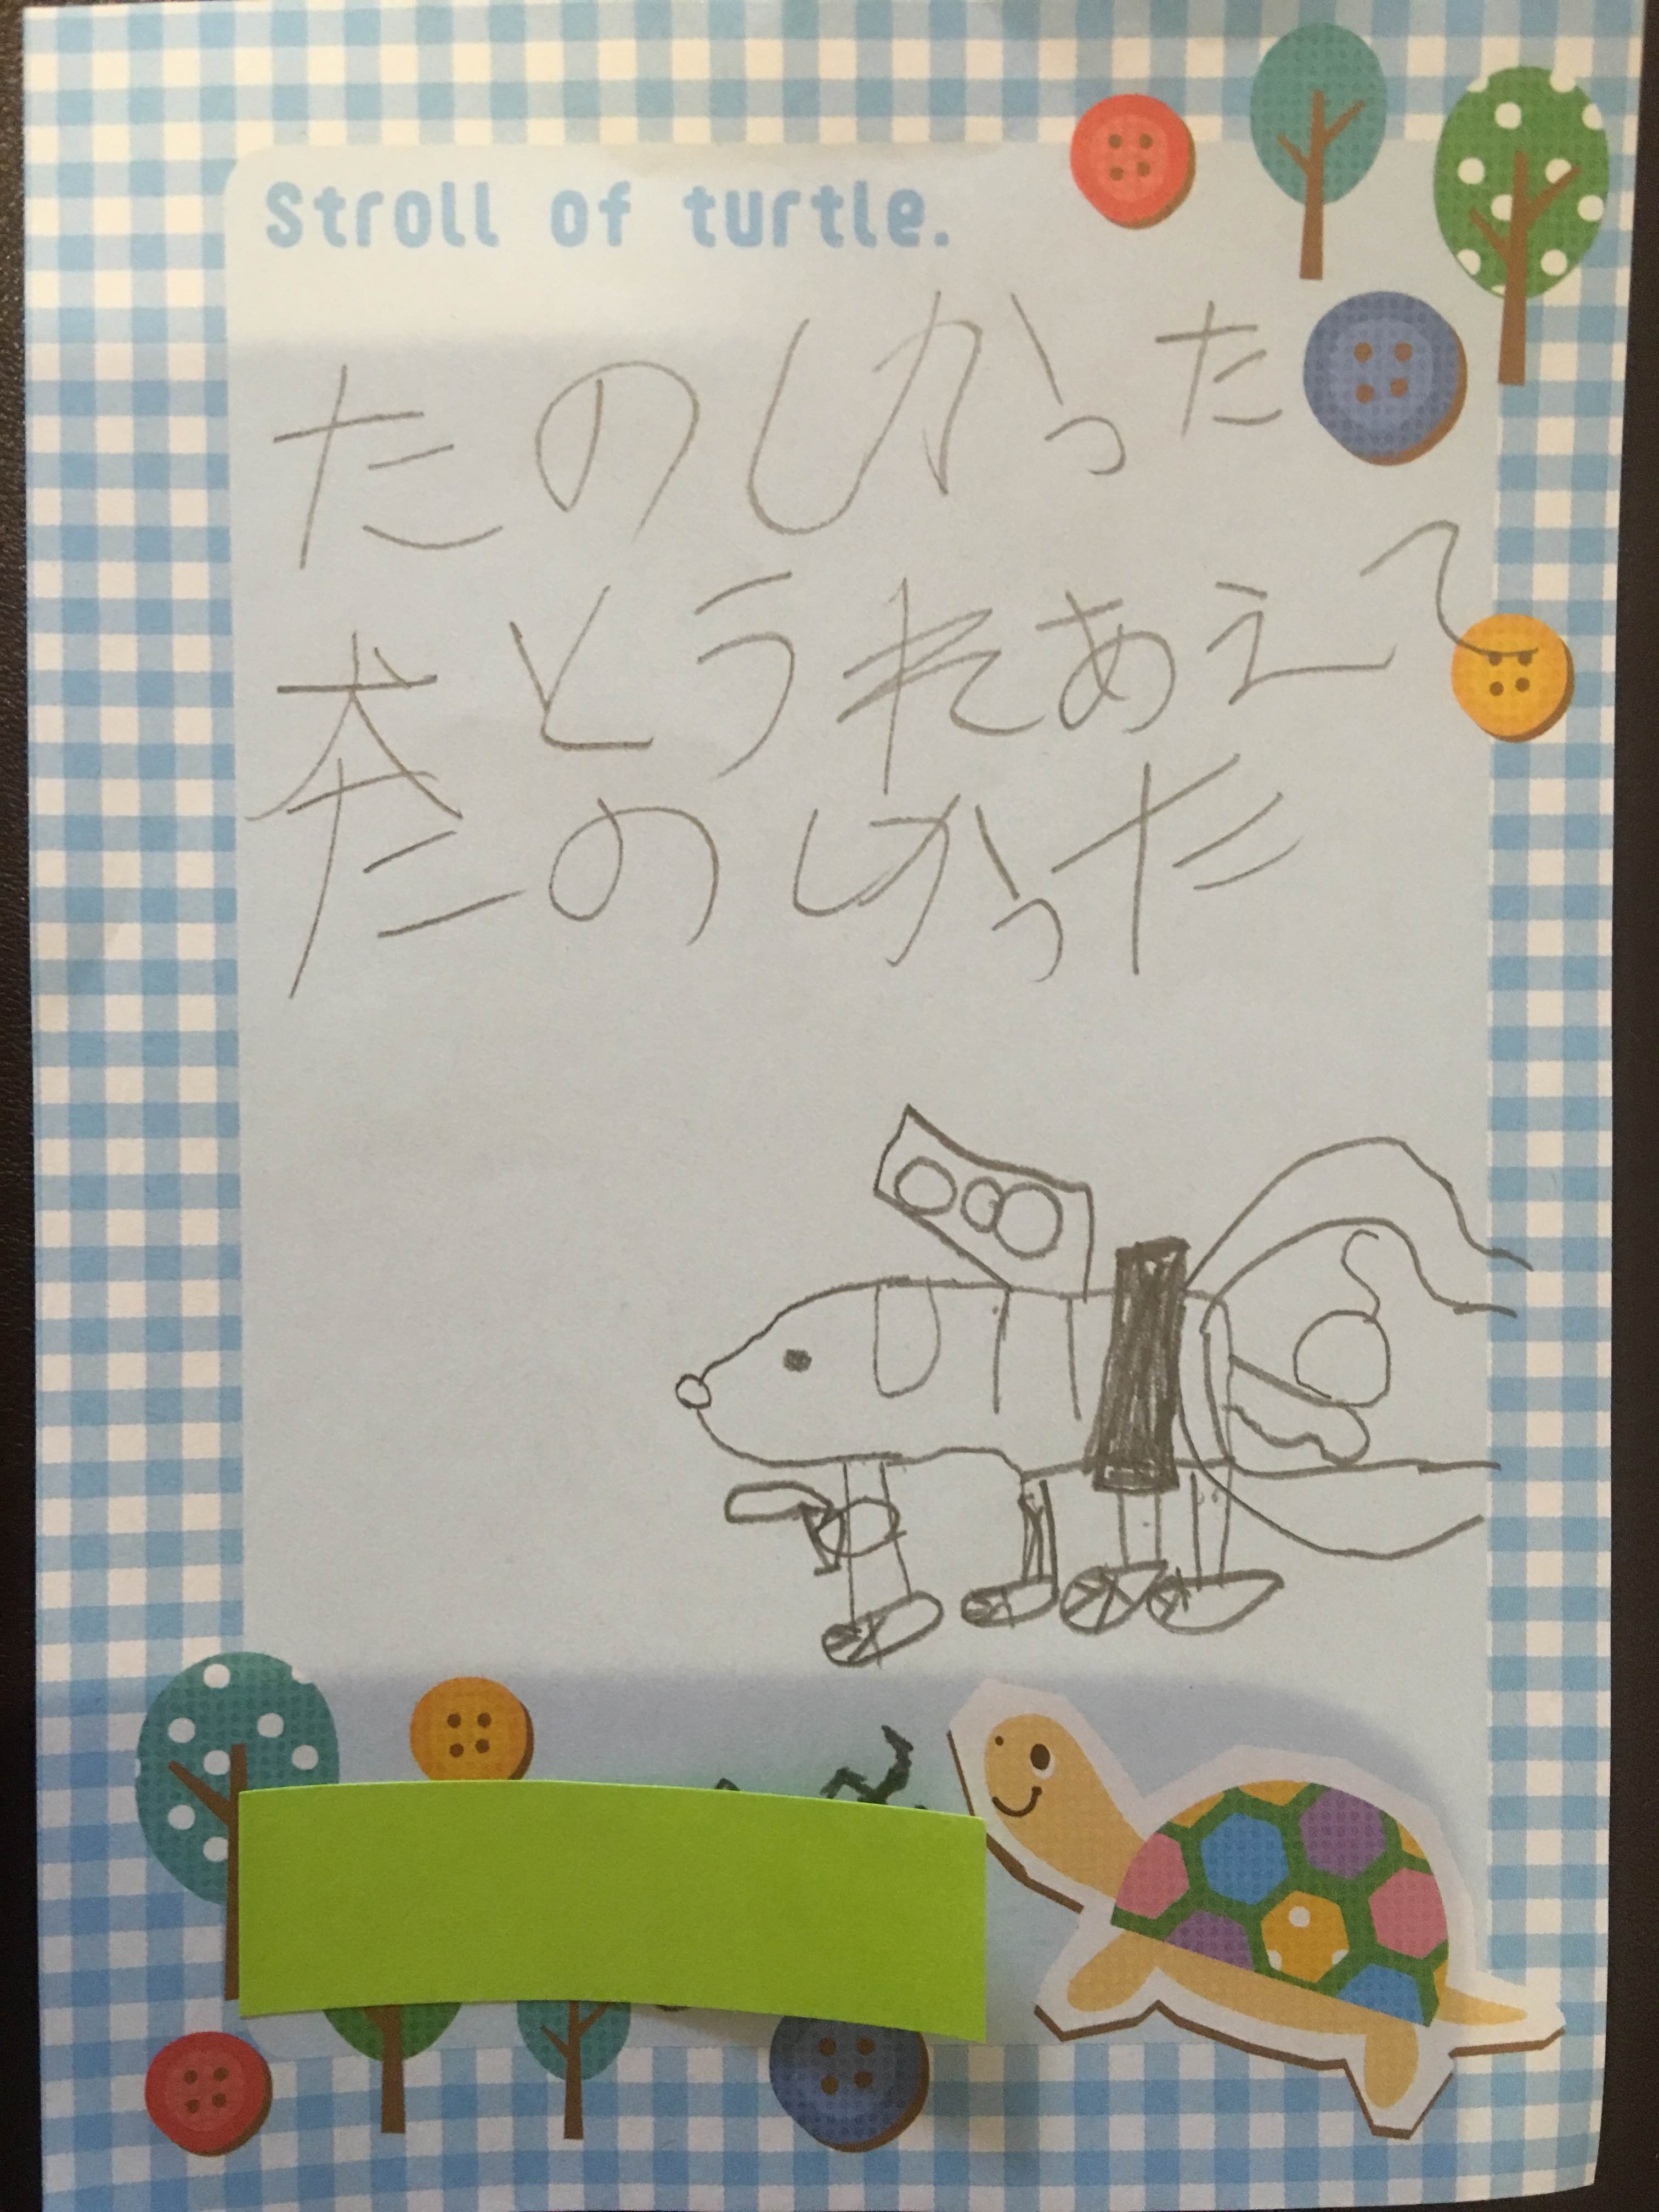 Stroll of turtle.
たのしかった
犬とうれあえて
たのしかった